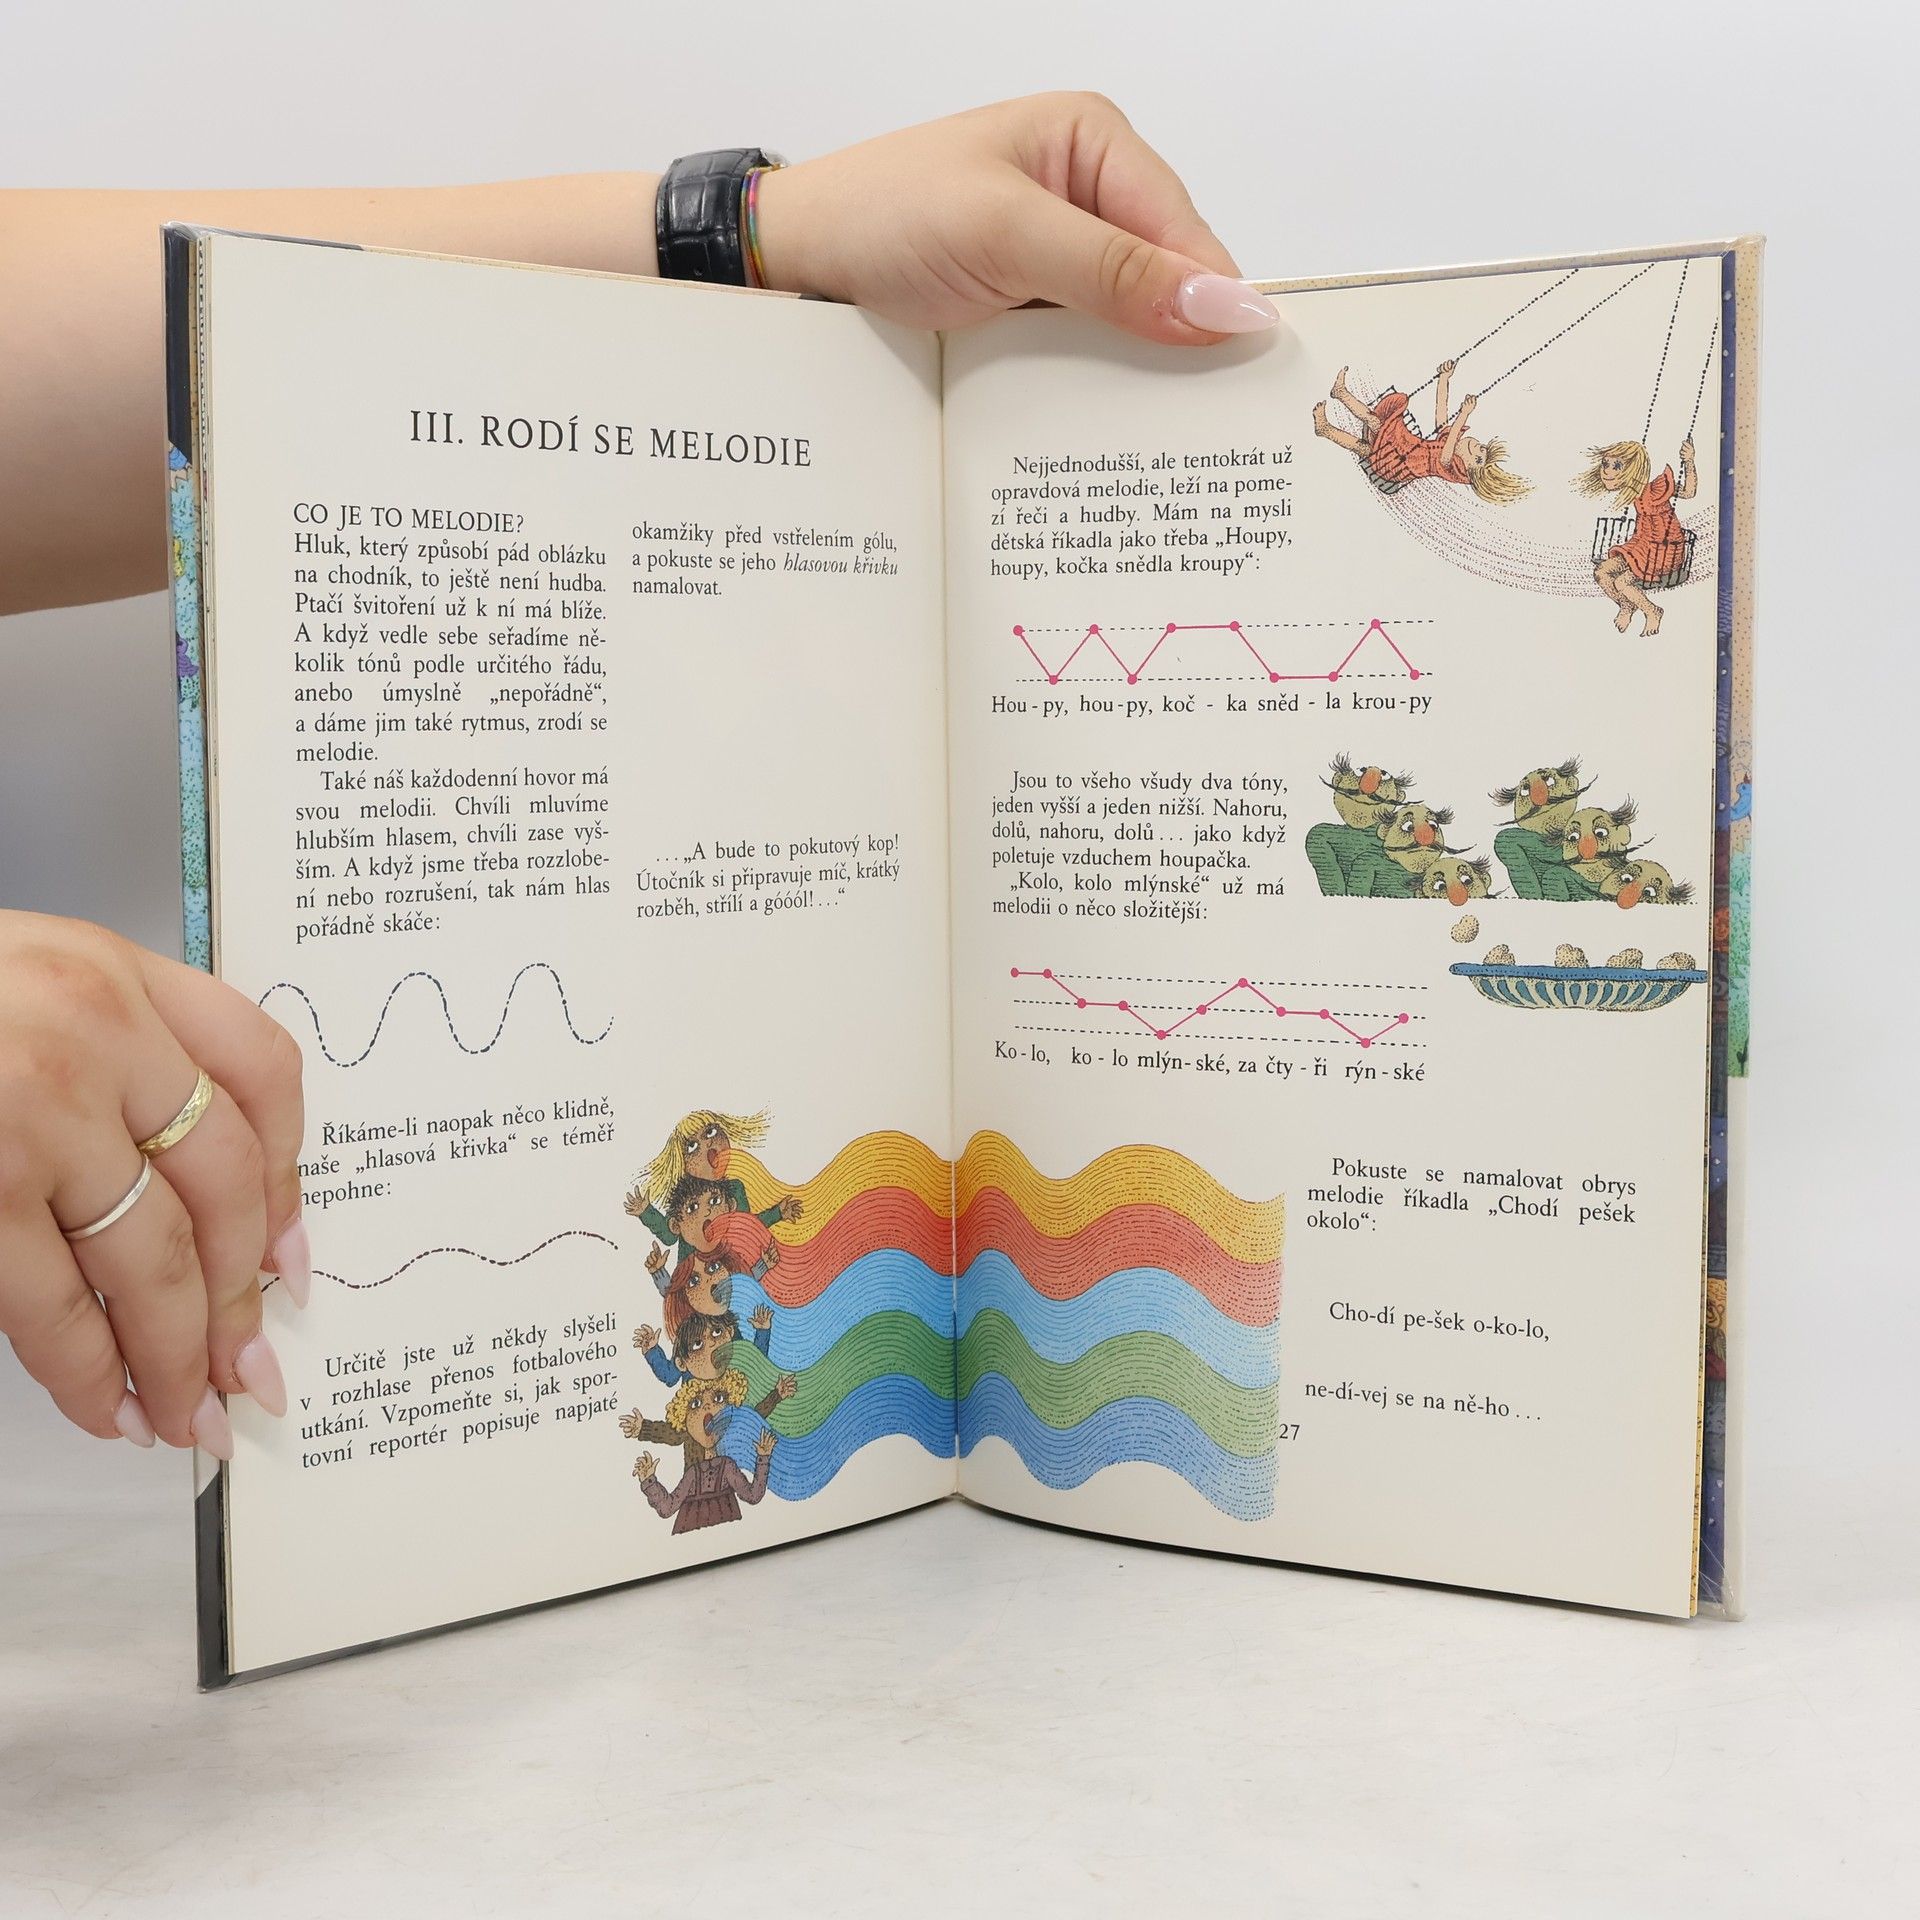 III. RODÍ SE MELODIE
CO JE TO MELODIE?
Hluk, který způsobí pád oblázku
na chodník, to ještě není hudba.
Ptačí švitoření už k ní má blíže.
A když vedle sebe seřadíme ně-
kolik tónů podle určitého řádu,
anebo úmyslně „nepořádně“,
a dáme jim také rytmus, zrodí se
melodie.
Také náš každodenní hovor má
svou melodii. Chvíli mluvíme
hlubším hlasem, chvíli zase vyš-
ším. A když jsme třeba rozzlobe-
ní nebo rozrušení, tak nám hlas
pořádně skáče:
Říkáme-li naopak něco klidně,
naše „hlasová křivka“ se téměř
nepohne:
Určitě jste už někdy slyšeli
v rozhlase přenos fotbalového
utkání. Vzpomeňte si, jak spor-
tovní reportér popisuje napjaté
okamžiky před vstřelením gólu,
a pokuste se jeho hlasovou křivku
namalovat.
...„A bude to pokutový kop!
Útočník si připravuje míč, krátký
rozběh, střílí a góóól!...“
Nejjednodušší, ale tentokrát už
opravdová melodie, leží na pome-
zí řeči a hudby. Mám na mysli
dětská říkadla jako třeba „Houpy,
houpy, kočka snědla kroupy“:
Hou - py, hou - py, koč - ka sněd - la krou - py
Jsou to všeho všudy dva tóny,
jeden vyšší a jeden nižší. Nahoru,
dolů, nahoru, dolů... jako když
poletuje vzduchem houpačka.
„Kolo, kolo mlýnské“ už má
melodii o něco složitější:
Ko - lo, ko - lo mlýn - ské, za čty - ři rýn - ské
Pokuste se namalovat obrys
melodie říkadla „Chodí pešek
okolo“:
Cho-dí pe-šek o-ko-lo,
ne-dí-vej se na ně-ho...
27